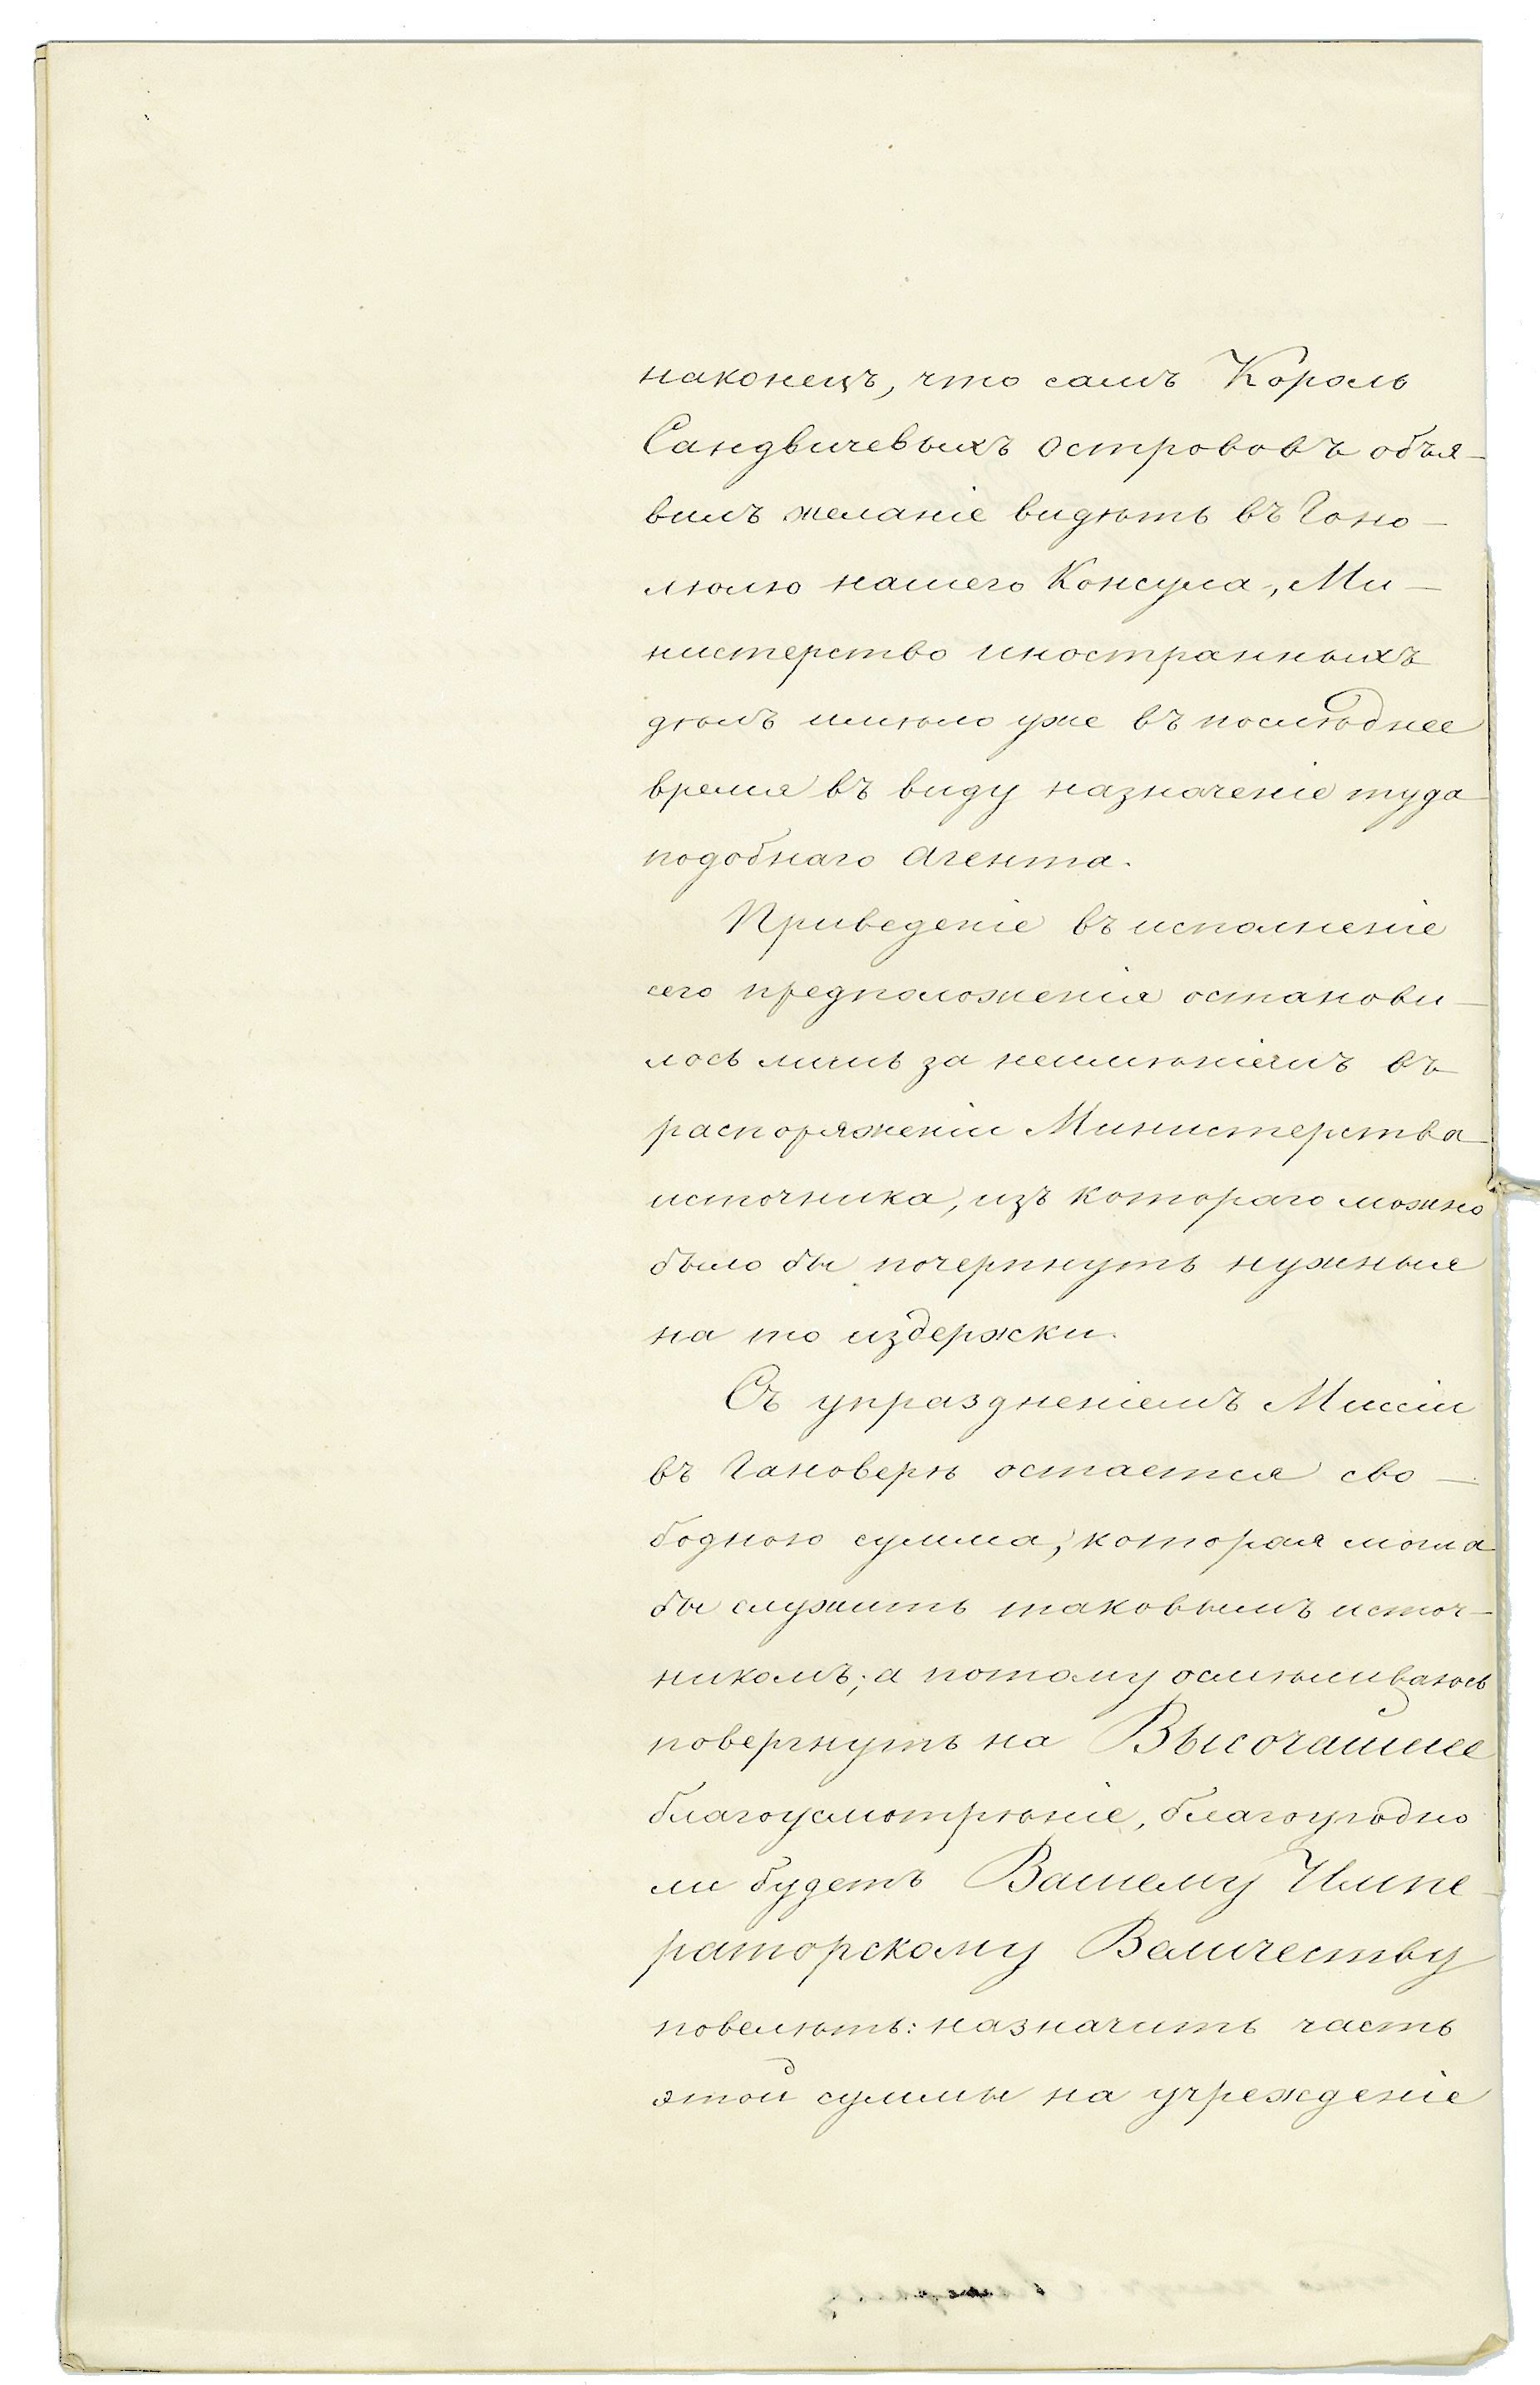 наконецъ, что самъ Король
Сандвичевыхъ острововъ объя-
вилъ желаніе видѣть въ Гоно-
люлю нашего Консула, Ми-
нистерство иностранныхъ
дѣлъ имѣло уже въ послѣднее
время въ виду назначеніе туда
подобнаго агента.
Приведеніе въ исполненіе
сего предположенія останови-
лось лишь за неимѣніемъ въ
распоряженіи Министерства
источника, изъ котораго можно
было бы почерпнуть нужные
на то издержки.
Съ упраздненіемъ Миссіи
въ Гановерѣ остается сво-
бодною сумма, которая могла
бы служить таковымъ источ-
никомъ; а потому осмѣливаюсь
повергнуть на Высочайшее
благоусмотрѣніе, благоугодно
ли будетъ Вашему Импе-
раторскому Величеству
повелѣть: назначить часть
этой суммы на учрежденіе